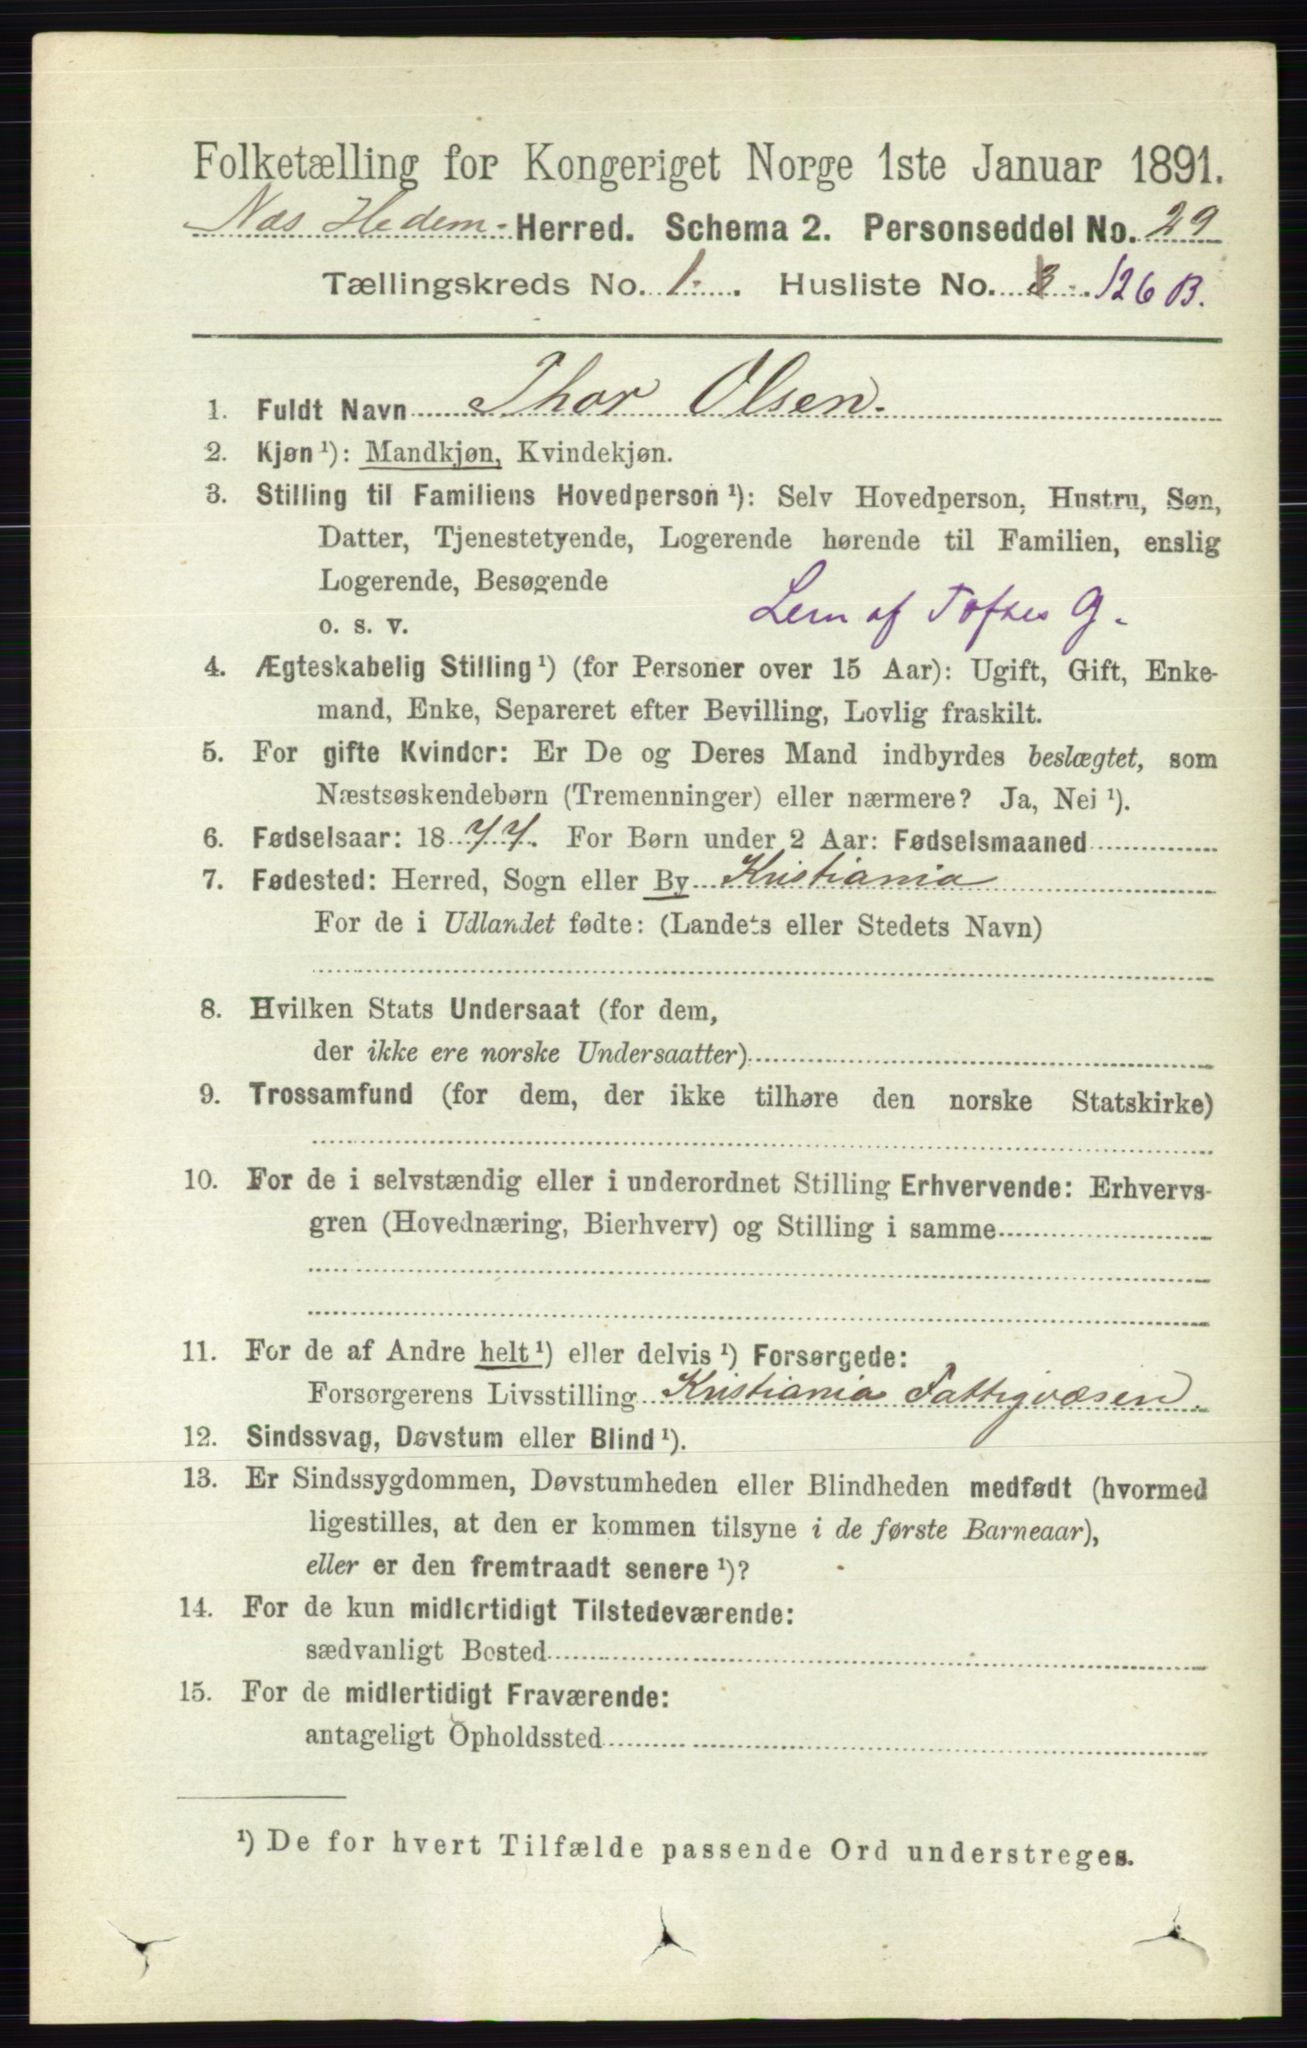 Folketælling for Kongeriget Norge 1ste Januar 1891.
Nes Hedem- Herred. Schema 2. Personseddel No. 29
Tællingskreds No. 1. Husliste No. 3. 126 B.
1. Fuldt Navn Thor Olsen.
2. Kjøn ¹): Mandkjøn, Kvindekjøn.
3. Stilling til Familiens Hovedperson ¹): Selv Hovedperson, Hustru, Søn,
Datter, Tjenestetyende, Logerende hørende til Familien, enslig
Logerende, Besøgende
o. s. v. Lem af Toftes G.
4. Ægteskabelig Stilling ¹) (for Personer over 15 Aar): Ugift, Gift, Enke-
mand, Enke, Separeret efter Bevilling, Lovlig fraskilt.
5. For gifte Kvinder: Er De og Deres Mand indbyrdes beslægtet, som
Næstsøskendebørn (Tremenninger) eller nærmere? Ja, Nei ¹).
6. Fødselsaar: 1877. For Børn under 2 Aar: Fødselsmaaned
7. Fødested: Herred, Sogn eller By Kristiania
For de i Udlandet fødte: (Landets eller Stedets Navn)
8. Hvilken Stats Undersaat (for dem,
der ikke ere norske Undersaatter)
9. Trossamfund (for dem, der ikke tilhøre den norske Statskirke)
10. For de i selvstændig eller i underordnet Stilling Erhvervende: Erhvervs-
gren (Hovednæring, Bierhverv) og Stilling i samme
11. For de af Andre helt ¹) eller delvis ¹) Forsørgede:
Forsørgerens Livsstilling Kristiania Fattigvæsen.
12. Sindssvag, Døvstum eller Blind ¹).
13. Er Sindssygdommen, Døvstumheden eller Blindheden medfødt (hvormed
ligestilles, at den er kommen tilsyne i de første Barneaar),
eller er den fremtraadt senere ¹)?
14. For de kun midlertidigt Tilstedeværende:
sædvanligt Bosted
15. For de midlertidigt Fraværende:
antageligt Opholdssted
¹) De for hvert Tilfælde passende Ord understreges.